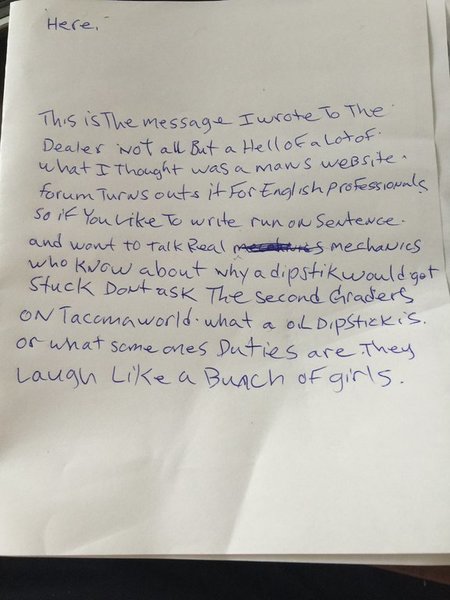 Here,
This is The message I wrote To The
Dealer Not all But a Hell of a Lot of.
what I Thought was a mans website.
forum Turns outs it For English professionals
so if You Like To write run on Sentence.
and want to Talk Real mechanics
who know about why a dipstik would get
Stuck Dont ask The second Graders
ON Tacomaworld. what a oil Dipstick is.
or what some ones Duties are. They
Laugh Like a Bunch of girls.